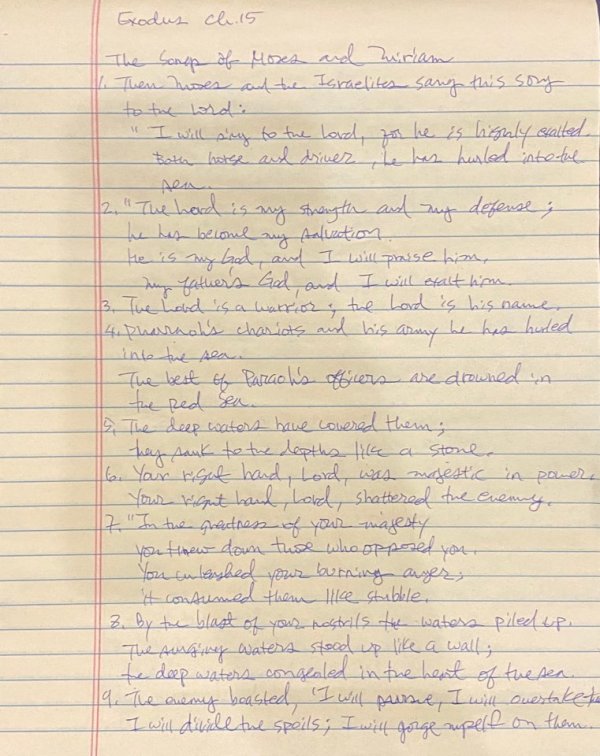 Exodus Ch.15
The Songs of Moses and Miriam
1. Then Moses and the Israelites sang this song
to the Lord:
"I will sing to the Lord, for he is highly exalted.
Both horse and driver, he has hurled into the
sea.
2. "The Lord is my strength and my defense;
he has become my salvation.
He is my God, and I will praise him,
my father's God, and I will exalt him.
3. The Lord is a warrior; the Lord is his name.
4. Pharaoh's chariots and his army he has hurled
into the sea.
The best of Paraoh's officers are drowned in
the Red Sea.
5. The deep waters have covered them;
they sank to the depths like a stone.
6. Your right hand, Lord, was majestic in power.
Your right hand, Lord, shattered the enemy.
7. "In the greatness of your majesty
you threw down those who opposed you.
You unleashed your burning anger;
it consumed them like stubble.
8. By the blast of your nostrils the waters piled up.
The surging waters stood up like a wall;
the deep waters congealed in the heart of the sea.
9. The enemy boasted, 'I will pursue, I will overtake
I will divide the spoils; I will gorge myself on them.